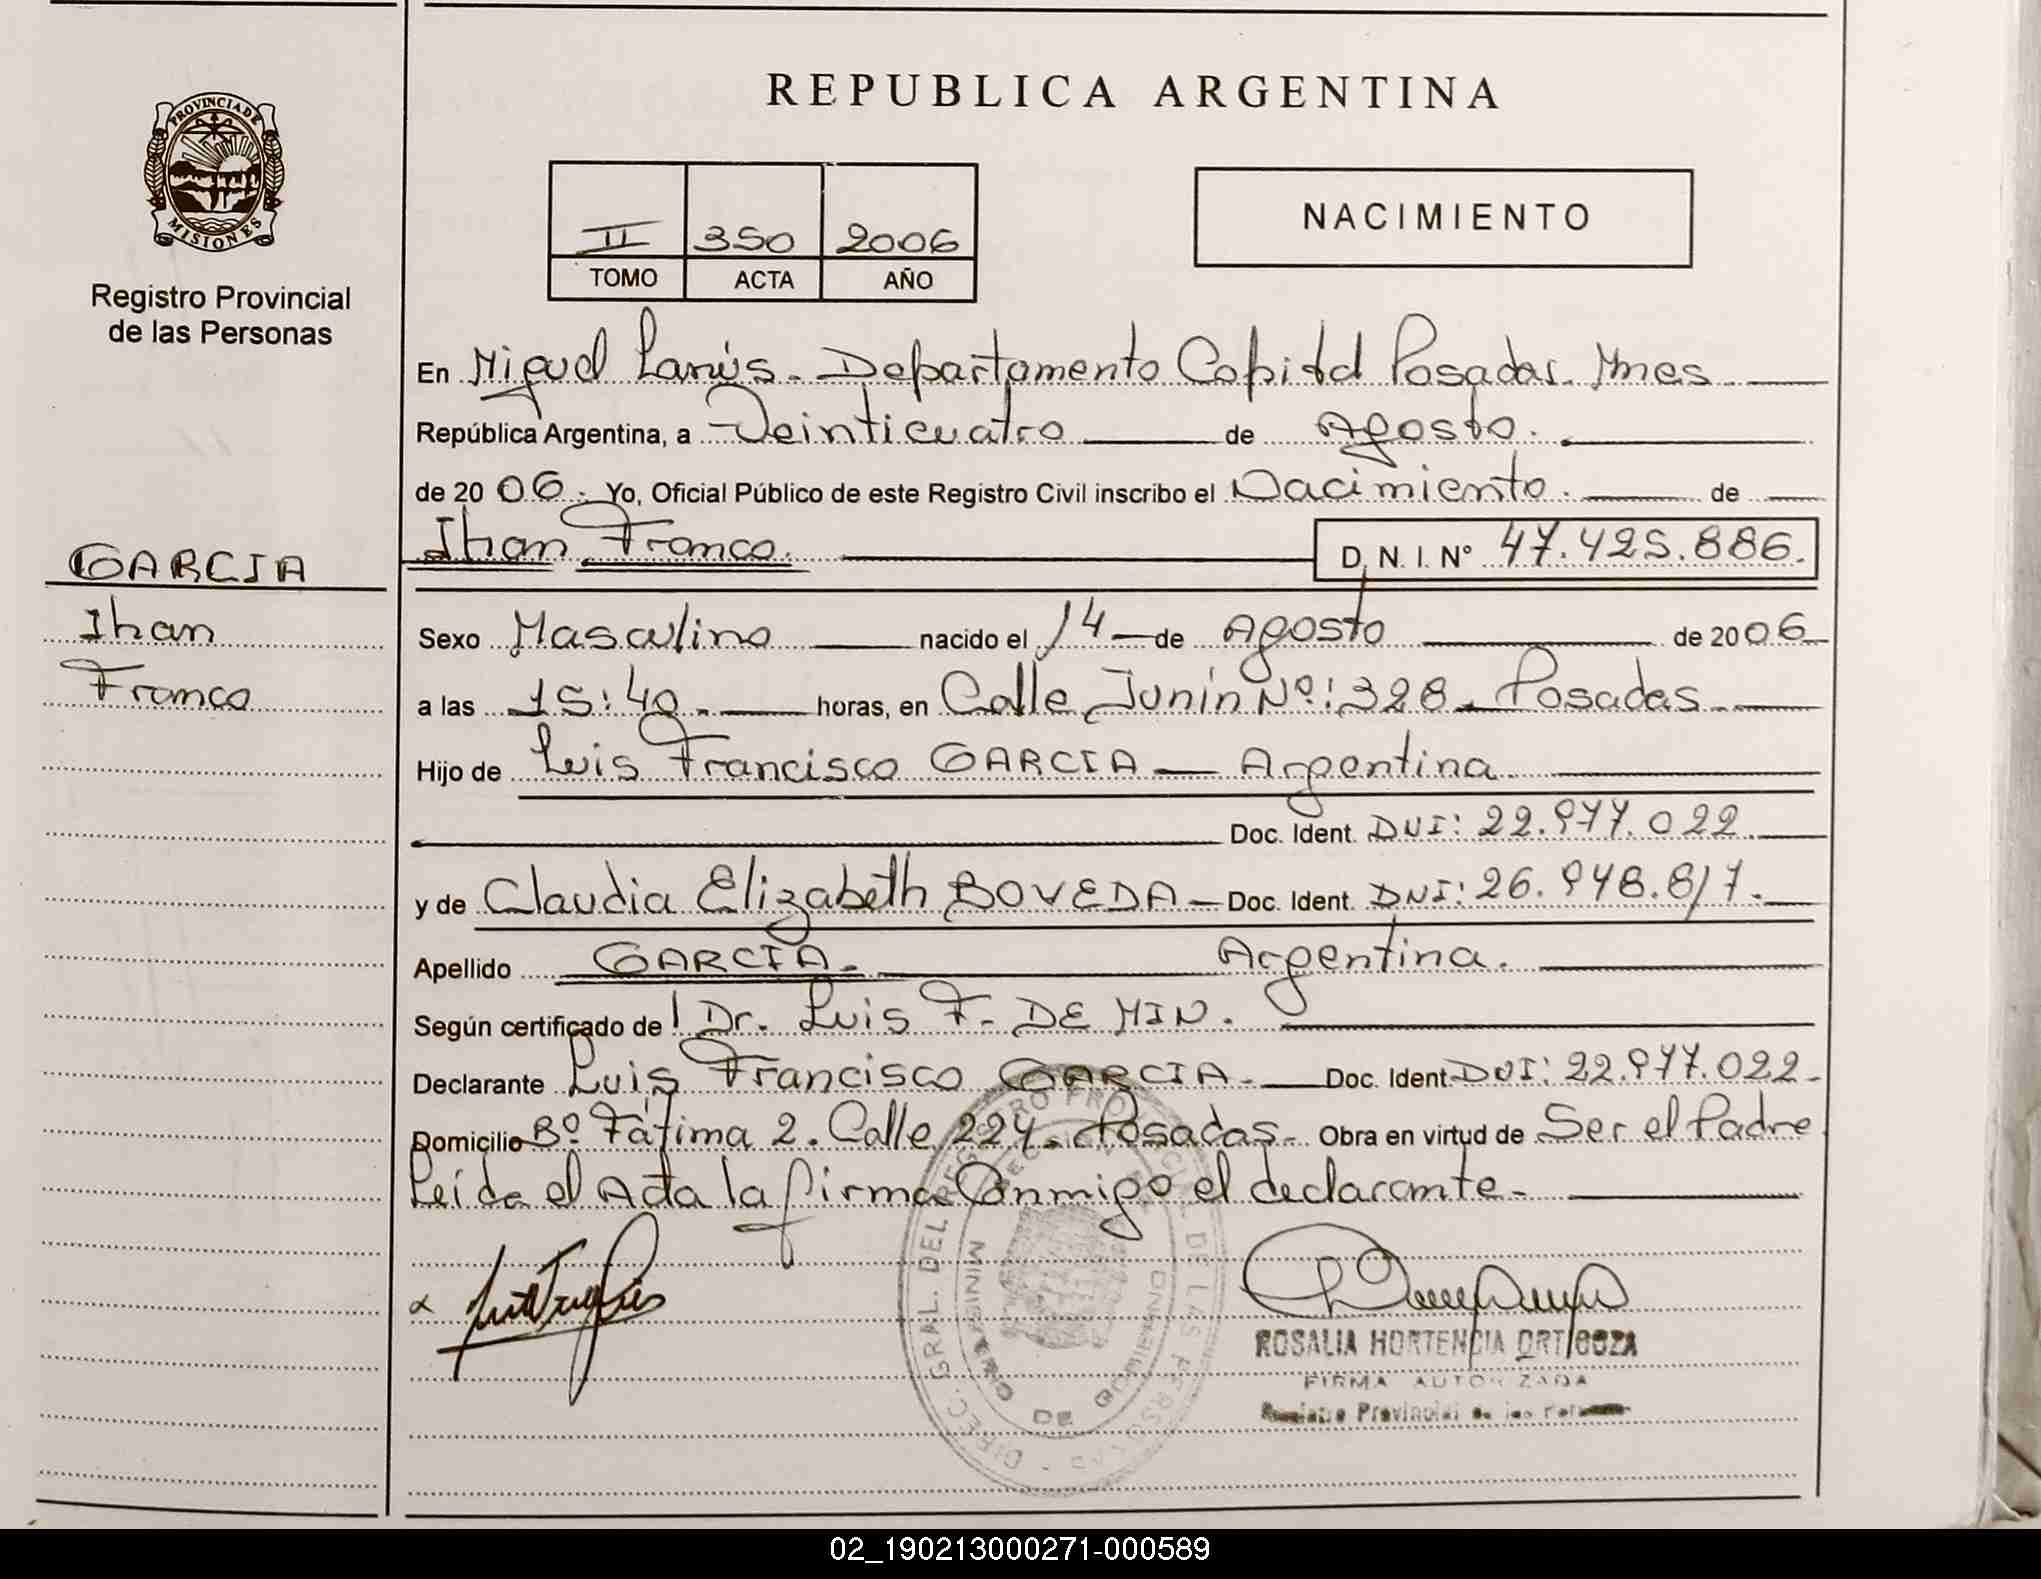 REPUBLICA ARGENTINA
PROVINCIA DE
MISIONES
Registro Provincial
de las Personas
II 350 2006
TOMO ACTA AÑO
NACIMIENTO
En Miguel Lanús - Departamento Capital Posadas - Mnes
República Argentina, a Veinticuatro de Agosto.
de 2006. Yo, Oficial Público de este Registro Civil inscribo el Nacimiento. de
Jhan Franco. D. N. I. N° 47.425.886.
GARCIA
Jhan
Franco
Sexo Masculino nacido el 14 de Agosto de 2006
a las 15:40. horas, en Calle Junín Nº: 328 - Posadas
Hijo de Luis Francisco GARCIA - Argentina
Doc. Ident. DNI: 22.977.022
y de Claudia Elizabeth BOVEDA - Doc. Ident. DNI: 26.948.817.
Apellido GARCIA. Argentina.
Según certificado de Dr. Luis F. DE MIN.
Declarante Luis Francisco GARCIA. Doc. Ident DNI: 22.977.022
Domicilio Bº Fátima 2. Calle 224 - Posadas - Obra en virtud de Ser el Padre
Leída el Acta la firma Conmigo el declarante -
DIREC. GRAL. DEL REGISTRO PROVINCIAL DE LAS PERSONAS
MINISTERIO DE GOBIERNO
ROSALIA HORTENCIA ORTIGOZA
FIRMA AUTORIZADA
Registro Provincial de las Personas
02_190213000271-000589